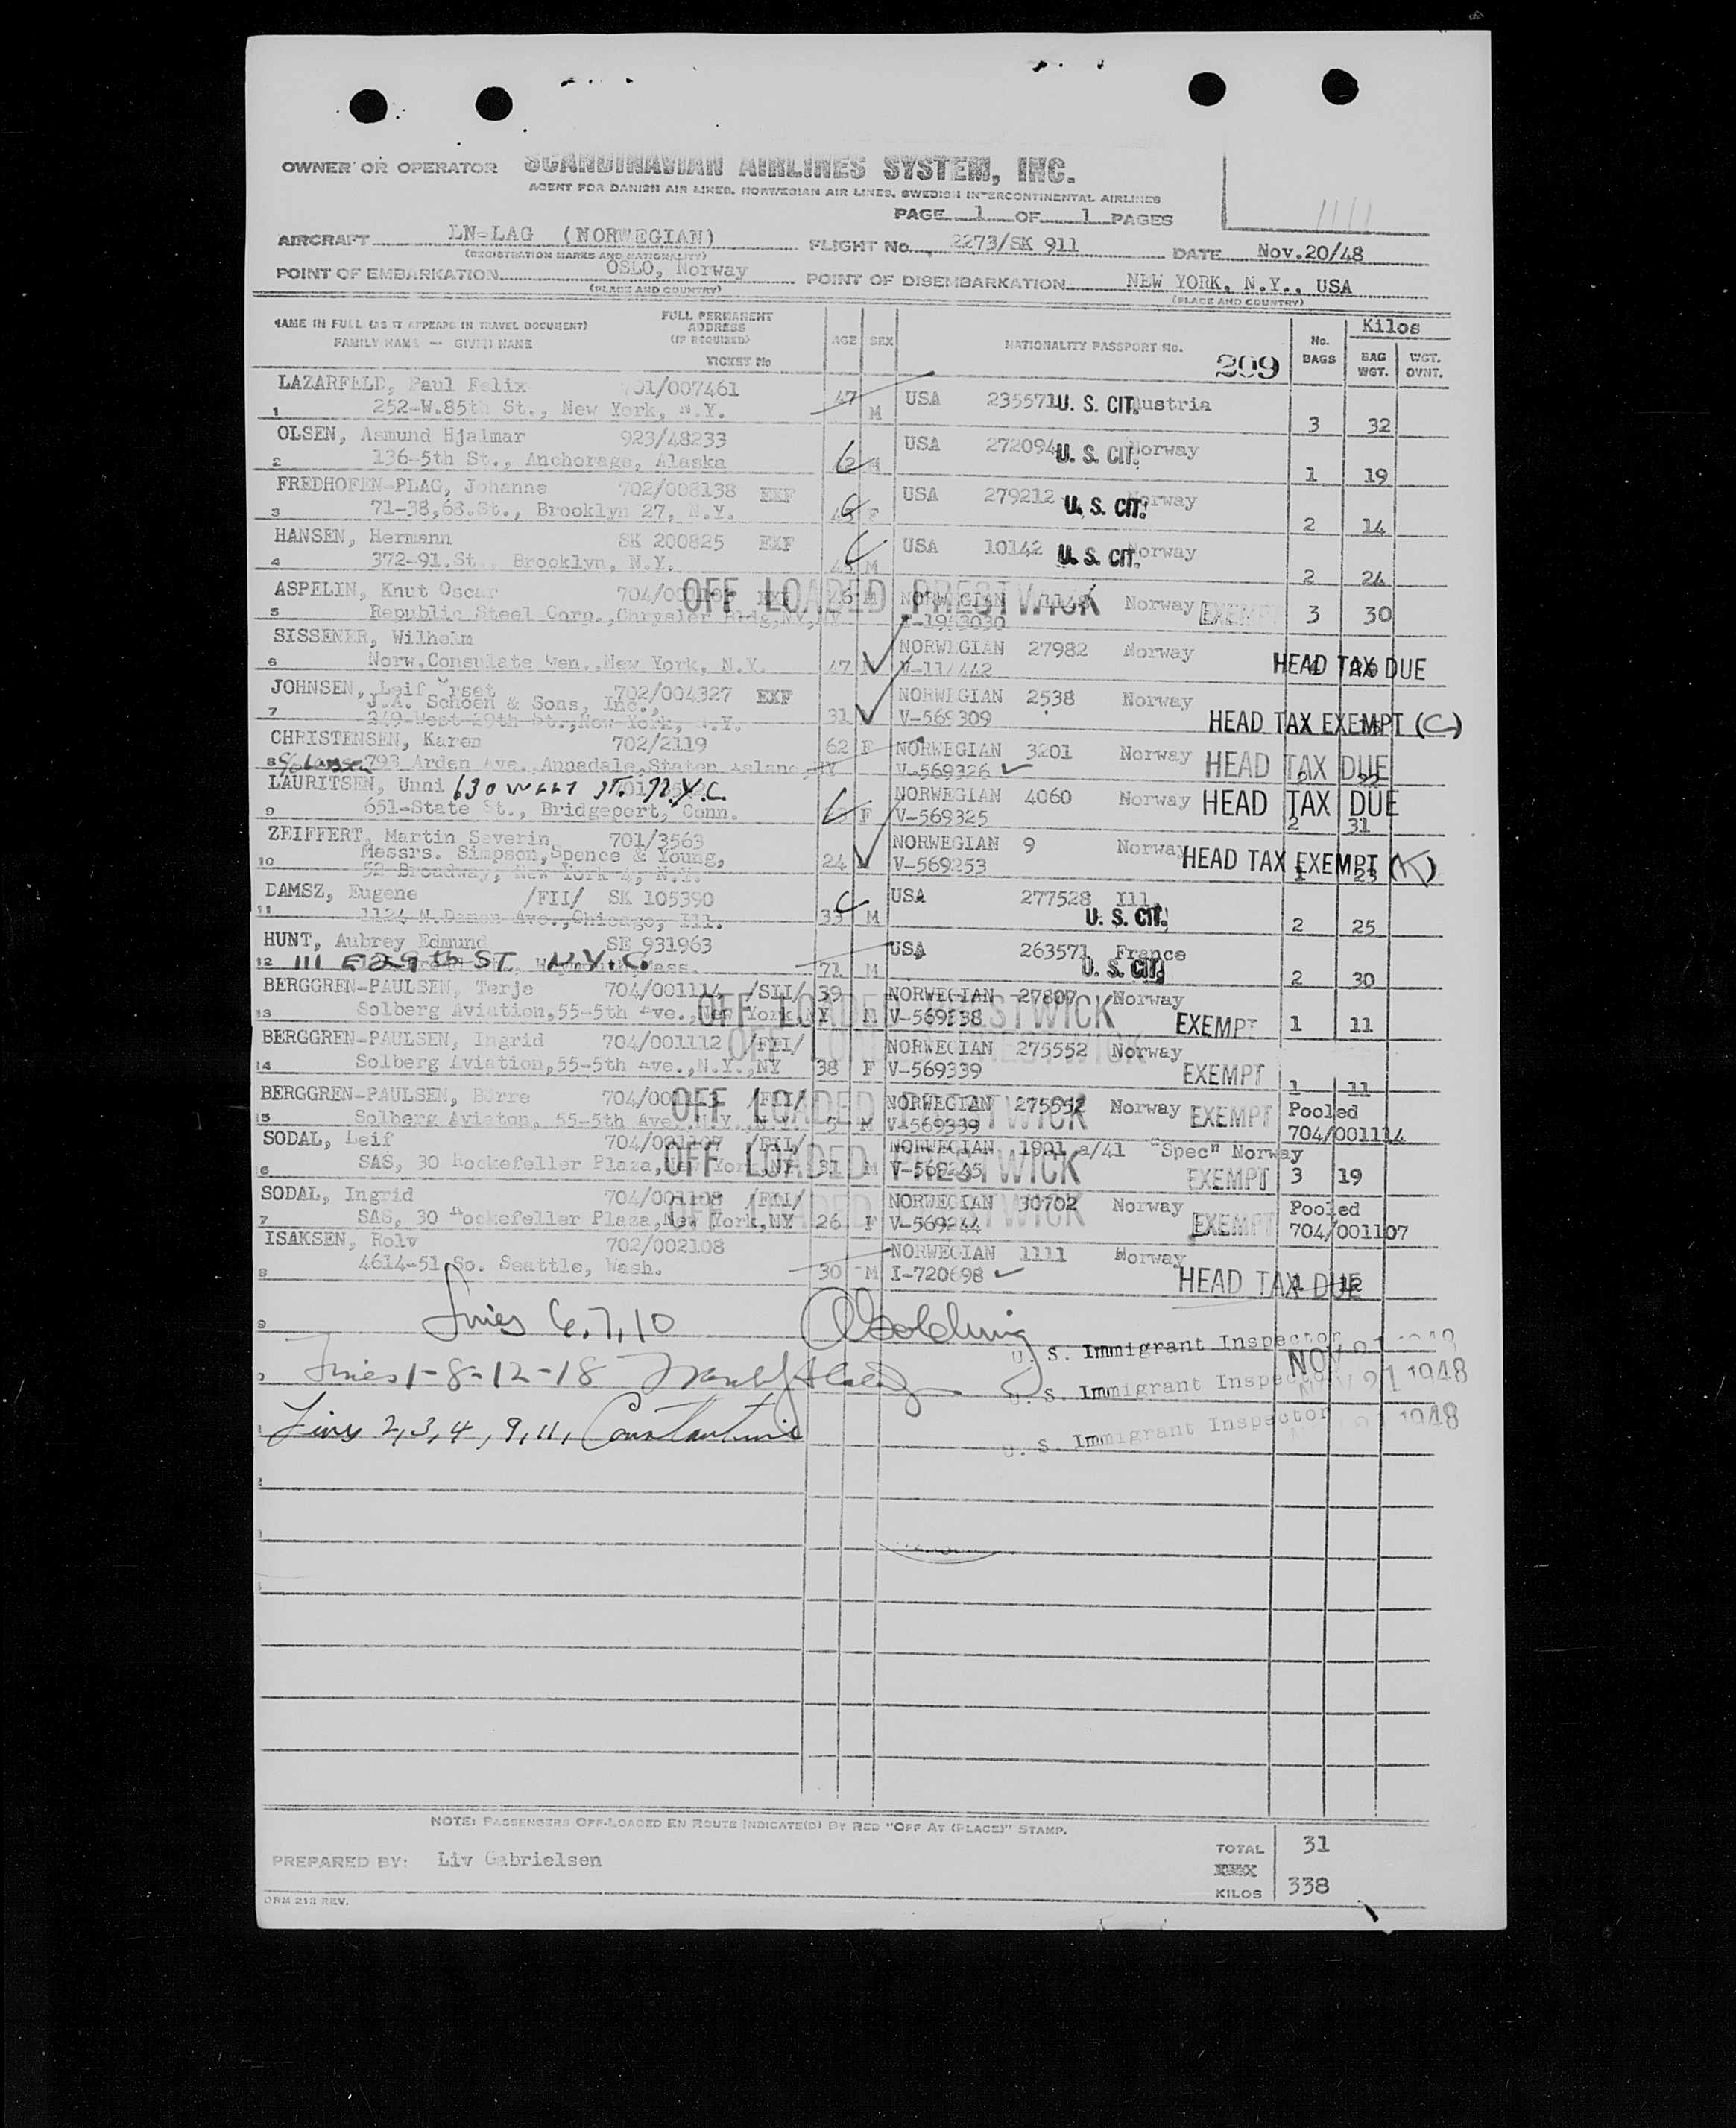 OWNER OR OPERATOR SCANDINAVIAN AIRLINES SYSTEM, INC.
AGENT FOR DANISH AIR LINES, NORWEGIAN AIR LINES, SWEDISH INTERCONTINENTAL AIRLINES
PAGE 1 OF 1 PAGES
1111
AIRCRAFT LN-LAG (NORWEGIAN) FLIGHT No. 2273/SK 911 DATE Nov.20/48
(REGISTRATION MARKS AND NATIONALITY)
POINT OF EMBARKATION OSLO, Norway POINT OF DISEMBARKATION NEW YORK, N.Y., USA
(PLACE AND COUNTRY) (PLACE AND COUNTRY)
NAME IN FULL (AS IT APPEARS IN TRAVEL DOCUMENT) FULL PERMANENT ADDRESS (IF REQUIRED) AGE SEX NATIONALITY PASSPORT No. No. BAGS Kilos
FAMILY NAME — GIVEN NAME TICKET No 209 BAG WGT. WGT. OVNT.
LAZARFELD, Paul Felix 701/007461 47 USA 235571 U. S. CIT. Austria
1 252-W.85th St., New York, N.Y. M 3 32
OLSEN, Asmund Hjalmar 923/48233 USA 272094 U. S. CIT. Norway
2 136-5th St., Anchorage, Alaska M 1 19
FREDHOFEN-PLAG, Johanne 702/008138 EXF USA 279212 U. S. CIT. Norway
3 71-38,68.St., Brooklyn 27, N.Y. F 2 14
HANSEN, Hermann SK 200825 EXF USA 10142 U. S. CIT. Norway
4 372-91.St., Brooklyn, N.Y. M 2 24
ASPELIN, Knut Oscar EXF 26 M NORWEGIAN Norway EXEMPT 3 30
OFF LOADED PRESTWICK
5 Republic Steel Corp.,Chrysler Bldg,NY,NY
SISSENER, Wilhelm NORWEGIAN 27982 Norway
6 Norw.Consulate Gen.,New York, N.Y. 47 HEAD TAX DUE
JOHNSEN, Leif 702/004327 EXF NORWEGIAN 2538 Norway
J.A. Schoen & Sons, Inc.,
7 249-West-29th St.,New York, N.Y. 31 V-569309 HEAD TAX EXEMPT (C)
CHRISTENSEN, Karen 702/2119 62 F NORWEGIAN 3201 Norway
8 793 Arden Ave. Annadale,Staten Island,NY V-569326 HEAD TAX DUE 22
LAURITSEN, Unni 630 WEST ST. N.Y.C. NORWEGIAN 4060 Norway HEAD TAX DUE
9 651-State St., Bridgeport, Conn. F V-569325 2 31
ZEIFFERT, Martin Severin 701/3563 NORWEGIAN 9 Norway
Messrs. Simpson,Spence & Young,
10 52 Broadway, New York 4, N.Y. 24 V-569253 HEAD TAX EXEMPT (K) 1 23
DAMSZ, Eugene /FII/ SK 105390 USA 277528 Ill.
11 1124 N.Damen Ave.,Chicago, Ill. M U. S. CIT. 2 25
HUNT, Aubrey Edmund SE 931963 USA 263571 France
12 111 E 29th ST N.Y.C. 71 M U. S. CIT. 2 30
BERGGREN-PAULSEN, Terje 704/001114 /SII/ 39 NORWEGIAN 27807 Norway
OFF LOADED PRESTWICK
13 Solberg Aviation,55-5th Ave.,New York NY M V-569338 EXEMPT 1 11
BERGGREN-PAULSEN, Ingrid 704/001112 /FII/ NORWEGIAN 275552 Norway
OFF LOADED PRESTWICK
14 Solberg Aviation,55-5th Ave.,N.Y.,NY 38 F V-569339 EXEMPT 1 11
BERGGREN-PAULSEN, Börre /FII/ NORWEGIAN 275552 Norway EXEMPT Pooled
OFF LOADED PRESTWICK
15 Solberg Aviaton, 55-5th Ave. 5 M V-569339 704/001114
SODAL, Leif 704/001107 /FII/ NORWEGIAN 1921 a/41 "Spec" Norway
OFF LOADED PRESTWICK
6 SAS, 30 Rockefeller Plaza,New York,NY 31 M EXEMPT 3 19
SODAL, Ingrid 704/001108 /FII/ NORWEGIAN 30702 Norway Pooled
OFF LOADED PRESTWICK
7 SAS, 30 Rockefeller Plaza,New York,NY 26 F V-569244 EXEMPT 704/001107
ISAKSEN, Rolv 702/002108 NORWEGIAN 1111 Norway
8 4614-51 So. Seattle, Wash. 30 M I-720698 HEAD TAX DUE 1 12
Lines 6,7,10
U. S. Immigrant Inspector
Lines 1-8-12-18
U. S. Immigrant Inspector NOV 21 1948
Lines 2,3,4,9,11, Constantine
U. S. Immigrant Inspector 1948
NOTE: PASSENGERS OFF-LOADED EN ROUTE INDICATE(D) BY RED "OFF AT (PLACE)" STAMP.
PREPARED BY: Liv Gabrielsen TOTAL 31
KILOS 338
ORM 213 REV.